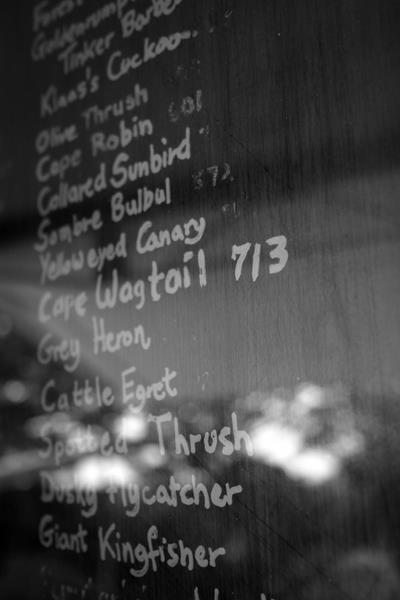 Forest
Goldenrumped
Tinker Barbet
Klaas's Cuckoo
Olive Thrush 501
Cape Robin
Collared Sunbird
Sombre Bulbul 572
Yellow eyed Canary
Cape Wagtail 713
Grey Heron
Cattle Egret
Spotted Thrush
Dusky flycatcher
Giant Kingfisher